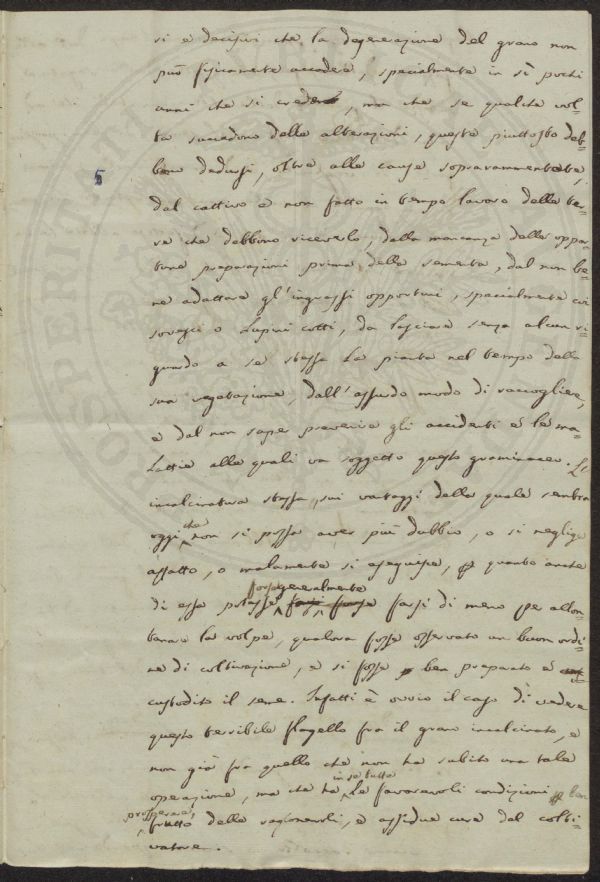 si e decisivi che la degenerazione del grano non
può fisicamente accadere, specialmente in sì pochi
anni che si crede, ma che se qualche vol-
ta succedono delle alterazioni, queste piuttosto deb-
bono dedursi, oltre alle cause soprarammentate,
5
dal cattivo e non fatto in tempo lavoro delle ter-
re che debbono riceverlo, dalla mancanza delle oppor-
tune preparazioni prima della sementa, dal non be-
ne adattare gl'ingrassi opportuni, specialmente coi
sovesci o Lupini cotti, da lasciare senza alcun ri-
guardo a se stessa la pianta nel tempo della
sua vegetazione, dall'assurdo modo di raccogliere,
e dal non saper prevenire gli accidenti e le ma-
lattie alle quali va soggetto questo graminaceo. La
incalcinatura stessa, sui vantaggi della quale sembra
oggi che non si possa aver più dubbio, o si neglige
affatto, o malamente si eseguisce, quanto anche
di essa potesse forse generalmente farsi di meno per allon-
tanare la volpe, qualora fosse osservato un buon ordi-
ne di coltivazione, e si fosse ben preparato e
custodito il seme. Infatti è ovvio il caso di vedere
questo terribile flagello fra il grano incalcinato, e
non già fra quello che non ha subito una tale
operazione, ma che ha in se tutte le favorevoli condizioni ben
prosperare, frutto delle ragionevoli, e assidue cure del colti-
vatore.